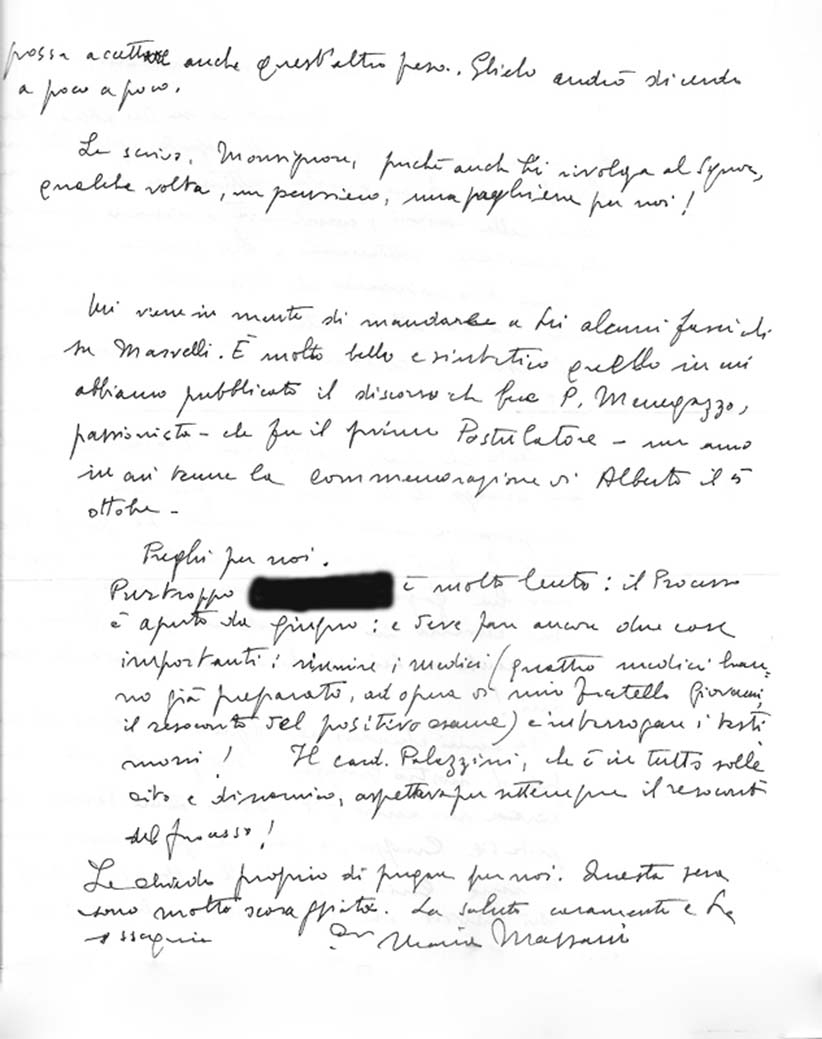 possa accettare anche quest'altro peso. Glielo andrò dicendo
a poco a poco.
Le scrivo, Monsignore, perché anche Lei rivolga al Signore,
qualche volta, un pensiero, una preghiera per noi!
Mi viene in mente di mandare a Lei alcuni fascicoli
su Marvelli. È molto bello e sintetico quello in cui
abbiamo pubblicato il discorso che fece P. Menegazzo,
passionista - che fu il primo Postulatore - un anno
in cui tenne la commemorazione di Alberto il 5
ottobre -
Preghi per noi.
Purtroppo è molto lento: il Processo
è aperto da giugno: e deve fare ancora due cose
importanti: riunire i medici (quattro medici han=
no già preparato, ad opera di mio fratello Giovanni,
il resoconto del positivo esame) e interrogare i testi
nuovi! Il card. Palazzini, che è in tutto solle
cito e dinamico, aspettava per settembre il resoconto
del processo!
Le chiedo proprio di pregare per noi. Questa sera
sono molto scoraggiata. La saluto caramente e La
ossequio Maria Massani